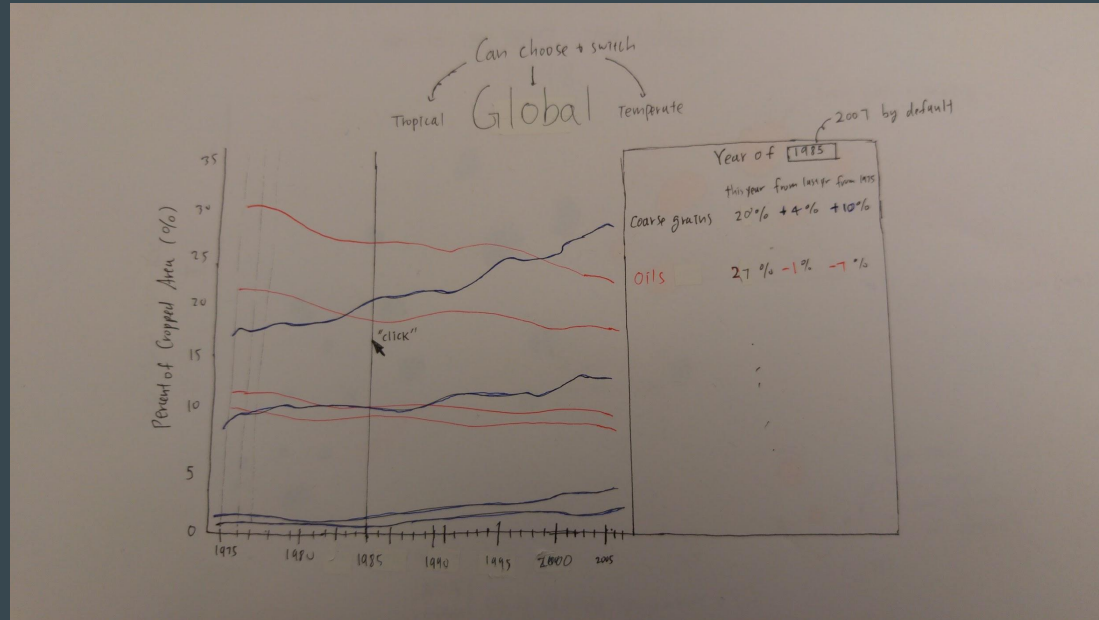 Can choose & switch
Tropical Global Temperate
2007 by default
Year of 1985
this year from last yr from 1975
Coarse grains 20% +4% +10%
Oils 27% -1% -7%
"click"
Percent of Cropped Area (%)
35
30
25
20
15
10
5
0
1975 1980 1985 1990 1995 2000 2005